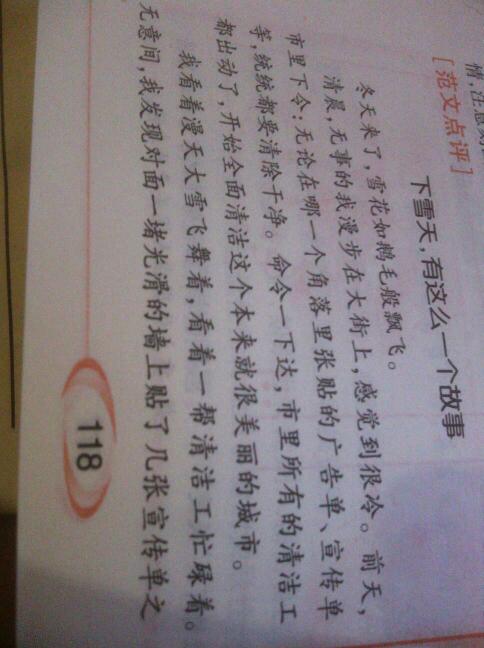 情，注意
［范文点评］
下雪天，有这么一个故事
冬天来了，雪花如鹅毛般飘飞。
清晨，无事的我漫步在大街上，感觉到很冷。前天，
市里下令：无论在哪一个角落里张贴的广告单、宣传单
等，统统都要清除干净。命令一下达，市里所有的清洁工
都出动了，开始全面清洁这个本来就很美丽的城市。
我看着漫天大雪飞舞着，看着一帮清洁工忙碌着。
无意间，我发现对面一堵光滑的墙上贴了几张宣传单之
118